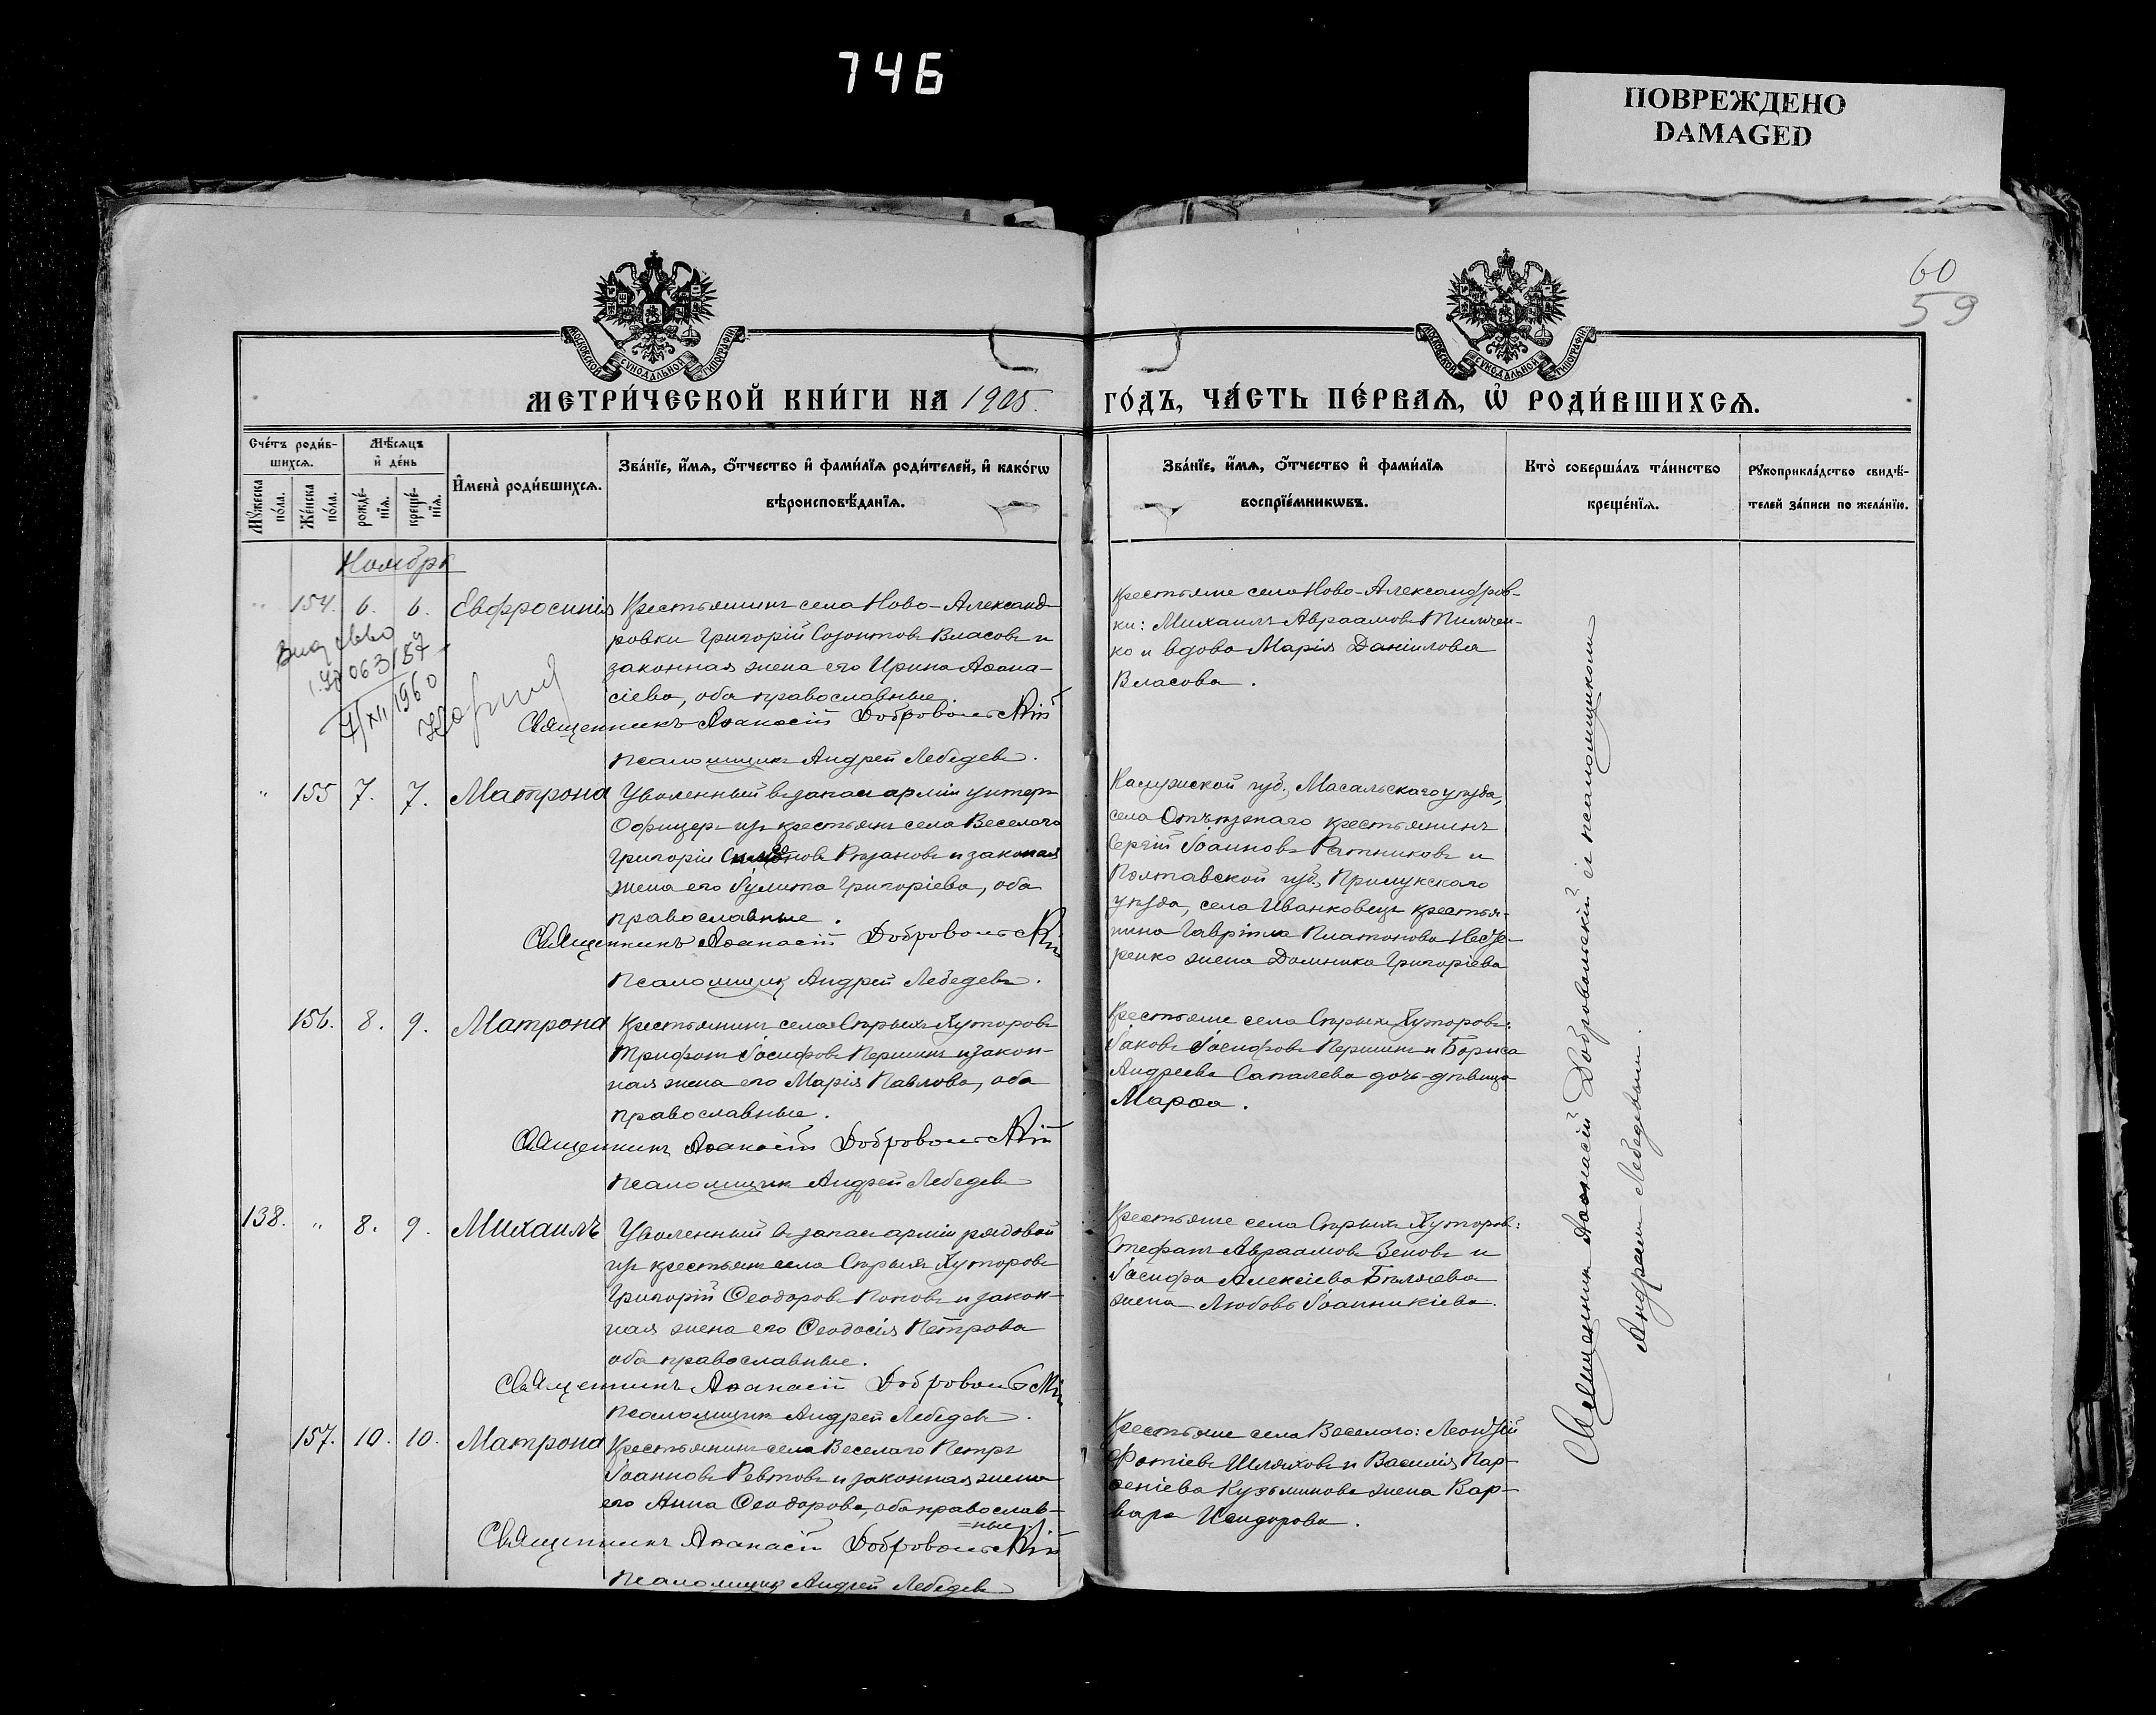 746
ПОВРЕЖДЕНО
DAMAGED
60
59
МОСКОВСКОЙ СУНОДАЛЬНОЙ ТИПОГРАФІИ
МОСКОВСКОЙ СУНОДАЛЬНОЙ ТИПОГРАФІИ
МЕТРИ́ЧЕСКОЙ КНИ́ГИ НА 1905. ГО́ДЪ, ЧА́СТЬ ПЕ́РВАѦ, Ѽ РОДИ́ВШИХСѦ.
Сче́тъ роди́в-
шихсѧ.
Мѣ́сѧцъ
и҆ де́нь
И҆мена̀ роди́вшихсѧ.
Зва́нїе, и҆́мѧ, ѻ҆́тчество и҆ фами́лїѧ роди́телей, и҆ како́гѡ
вѣроисповѣ́данїѧ.
Зва́нїе, и҆́мѧ, ѻ҆́тчество и҆ фами́лїѧ
воспрїе́мникѡвъ.
Кто̀ соверша́лъ та́инство
креще́нїѧ.
Рꙋкоприкла́дство свидѣ́-
телей за́писи по жела́нїю.
Мꙋ́жеска
по́ла.
Же́нска
по́ла.
рожде́-
нїѧ.
креще́-
нїѧ.
Ноября
" 154. 6. 6. Евфросинія
Крестьянинъ села Ново-Александ-
ровки Григорій Созонтовъ Власовъ и
законная жена его Ирина Аѳана-
сіева, оба православные.
Священникъ Аѳанасій Добровольскій
Псаломщикъ Андрей Лебедевъ.
Крестьяне села Ново-Александров-
ки: Михаилъ Авраамовъ Тимчен-
ко и вдова Марія Даніилова
Власова.
1960
" 155 7. 7. Матрона
Уволенный въ запас арміи унтеръ
Офицеръ изъ крестьянъ села Веселаго
Григорій Рязановъ и законная
жена его Іулита Григоріева, оба
православные.
Священникъ Аѳанасій Добровольскій
Псаломщикъ Андрей Лебедевъ.
Калужской губ., Масальскаго уѣзда,
села крестьянинъ
Сергій Іоанновъ Ратниковъ и
Полтавской губ., Прилукскаго
уѣзда, села Иванковецъ крестья-
нина Гавріила Платонова
жена Домника Григоріева
156. 8. 9. Матрона
Крестьянинъ села Старыхъ Хуторовъ
Трифонъ Іосифовъ Першинъ и закон-
ная жена его Марія Павлова, оба
православные.
Священникъ Аѳанасій Добровольскій
Псаломщикъ Андрей Лебедевъ
Крестьяне села Старыхъ Хуторовъ:
Іаковъ Іосифовъ Першинъ и Бориса
Андреева Сапалева дочь-дѣвица
Марѳа.
138. " 8. 9. Михаилъ
Уволенный въ запас арміи рядовой
изъ крестьянъ села Старыхъ Хуторовъ
Григорій Ѳеодоровъ Поповъ и закон-
ная жена его Ѳеодосія Петрова
оба православные.
Священникъ Аѳанасій Добровольскій
Псаломщикъ Андрей Лебедевъ.
Крестьяне села Старыхъ Хуторовъ:
Стефанъ Авраамовъ Зеновъ и
Іосифа Алексіева Бѣляева
жена Любовь Іоанникіева.
157. 10. 10. Матрона
Крестьянинъ села Веселаго Петръ
Іоанновъ Ревтовъ и законная жена
его Анна Ѳеодорова, оба православ-
=ные.
Священникъ Аѳанасій Добровольскій
Псаломщикъ Андрей Лебедевъ
Крестьяне села Веселаго: Леонтій
Фотіевъ Шляховъ и Василія Пар-
ѳеніева Кузьминова жена Вар-
вара Исидорова.
Священникъ Аѳанасій Добровольскій съ псаломщикомъ
Андреемъ Лебедевымъ.